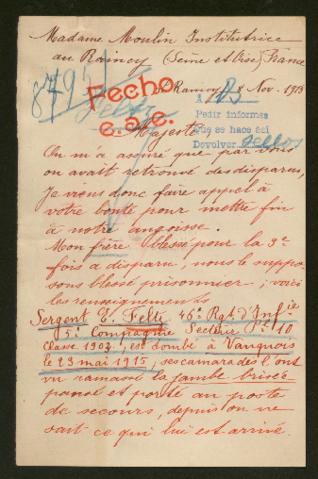 Madame Moulin Institutrice
au Raincy (Seine et Oise) France
8795
Fecho
Raincy 8 Nov. 1915
e. a. e.
Pedir informes
que se hace así
Devolver sellos
Majesté,
On m'a assuré que par vous
on avait retrouvé des disparus,
Je viens donc faire appel à
votre bonté pour mettre fin
à notre angoisse.
Mon frère blessé pour la 3e
fois a disparu, nous le suppo-
sons blessé prisonnier; voici
les renseignements
Sergent E. Felti 46e Rgt d'Infie
5e Compagnie Secteur P. 10
Classe 1902, est tombé à Vauquois
le 23 mai 1915, ses camarades l'ont
vu ramassé la jambe brisée
pansé et porté au poste
de secours, depuis on ne
sait ce qui lui est arrivé.